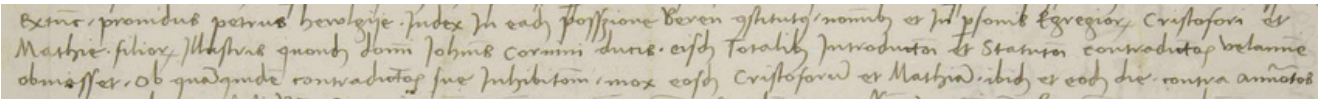 Extunc prouidus petrus hewlgije Judex In eadem possessione Beren constitutus nominibus et In personis Egregiorum Cristofori et
Mathie filiorum Illustris quondam domini Johannis Coruini ducis eisdem Totalibus Introductioni et Statutioni contradictorie velamine
obuiasset Ob quamquidem contradictorie sue Inhibitionem mox eosdem Cristoforum et Mathiam ibidem et eodem die contra annotatos